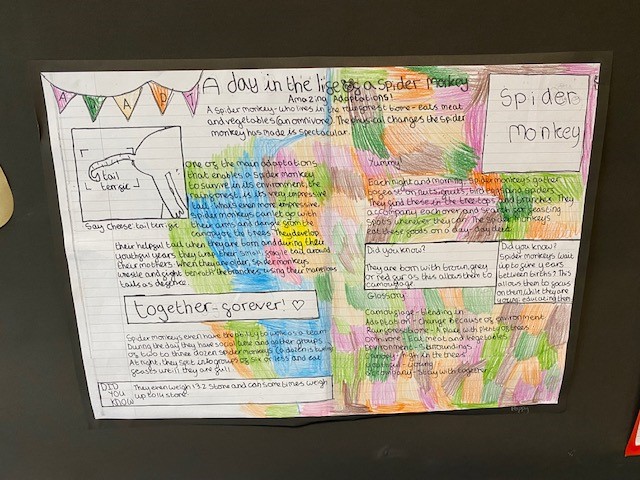 A day in the life of a spider monkey
Amazing Adaptations!
A spider monkey - who lives in the rainforest biome - eats meat
and vegetables (an omnivore). The physical changes the spider
monkey has made is spectacular.
A
D
A
P
T
tail
tense
Say cheese tail terrific
One of the main adaptations
that enables a Spider monkey
to survive in its environment, the
rainforest, is its very impressive
tail. What's even more impressive,
spider monkeys can let go with
their arms and dangle from the
canopy of the trees. They develop
their helpful tail when they are born and during their
youthful years, they wrap their small, fragile tail around
their mothers. When they are older, spider monkeys
wrestle and fight beneath the branches using their
tails as defence.
together-forever! ♡
Spider monkeys even have the ability to work as a team.
During the day they have social time and gather groups
of two to three dozen spider monkeys (a dozen is twelve)
At night, they split into groups of six or less and eat
feasts until they are full
DID YOU KNOW
They even weigh 13.2 stone and can sometimes weigh
up to 14 stone
Spider
Monkey
Yummy!
Each night and morning, spider monkeys gather
to feast on nuts, fruits, bird eggs and spiders.
They find these in the tree tops and branches. They
accompany each over and search for feasting
spots whenever they can. The spider monkeys
eat these foods on a day-day diet.
Did you know?
They are born with brown, grey
or red fur as this allows them to
camouflage.
Did you know?
Spider monkeys wait
up to five years
between births? This
allows them to focus
on them, while they are
young, educating them
Glossary
Camouflage - blending in
Adaptation - Change Because of environment
Rainforest - A place with plenty of trees
Omnivore - Eat meat and vegetables.
Environment - Surroundings
Canopy - high in the trees
Youthful - young
Accompany - Stay with together